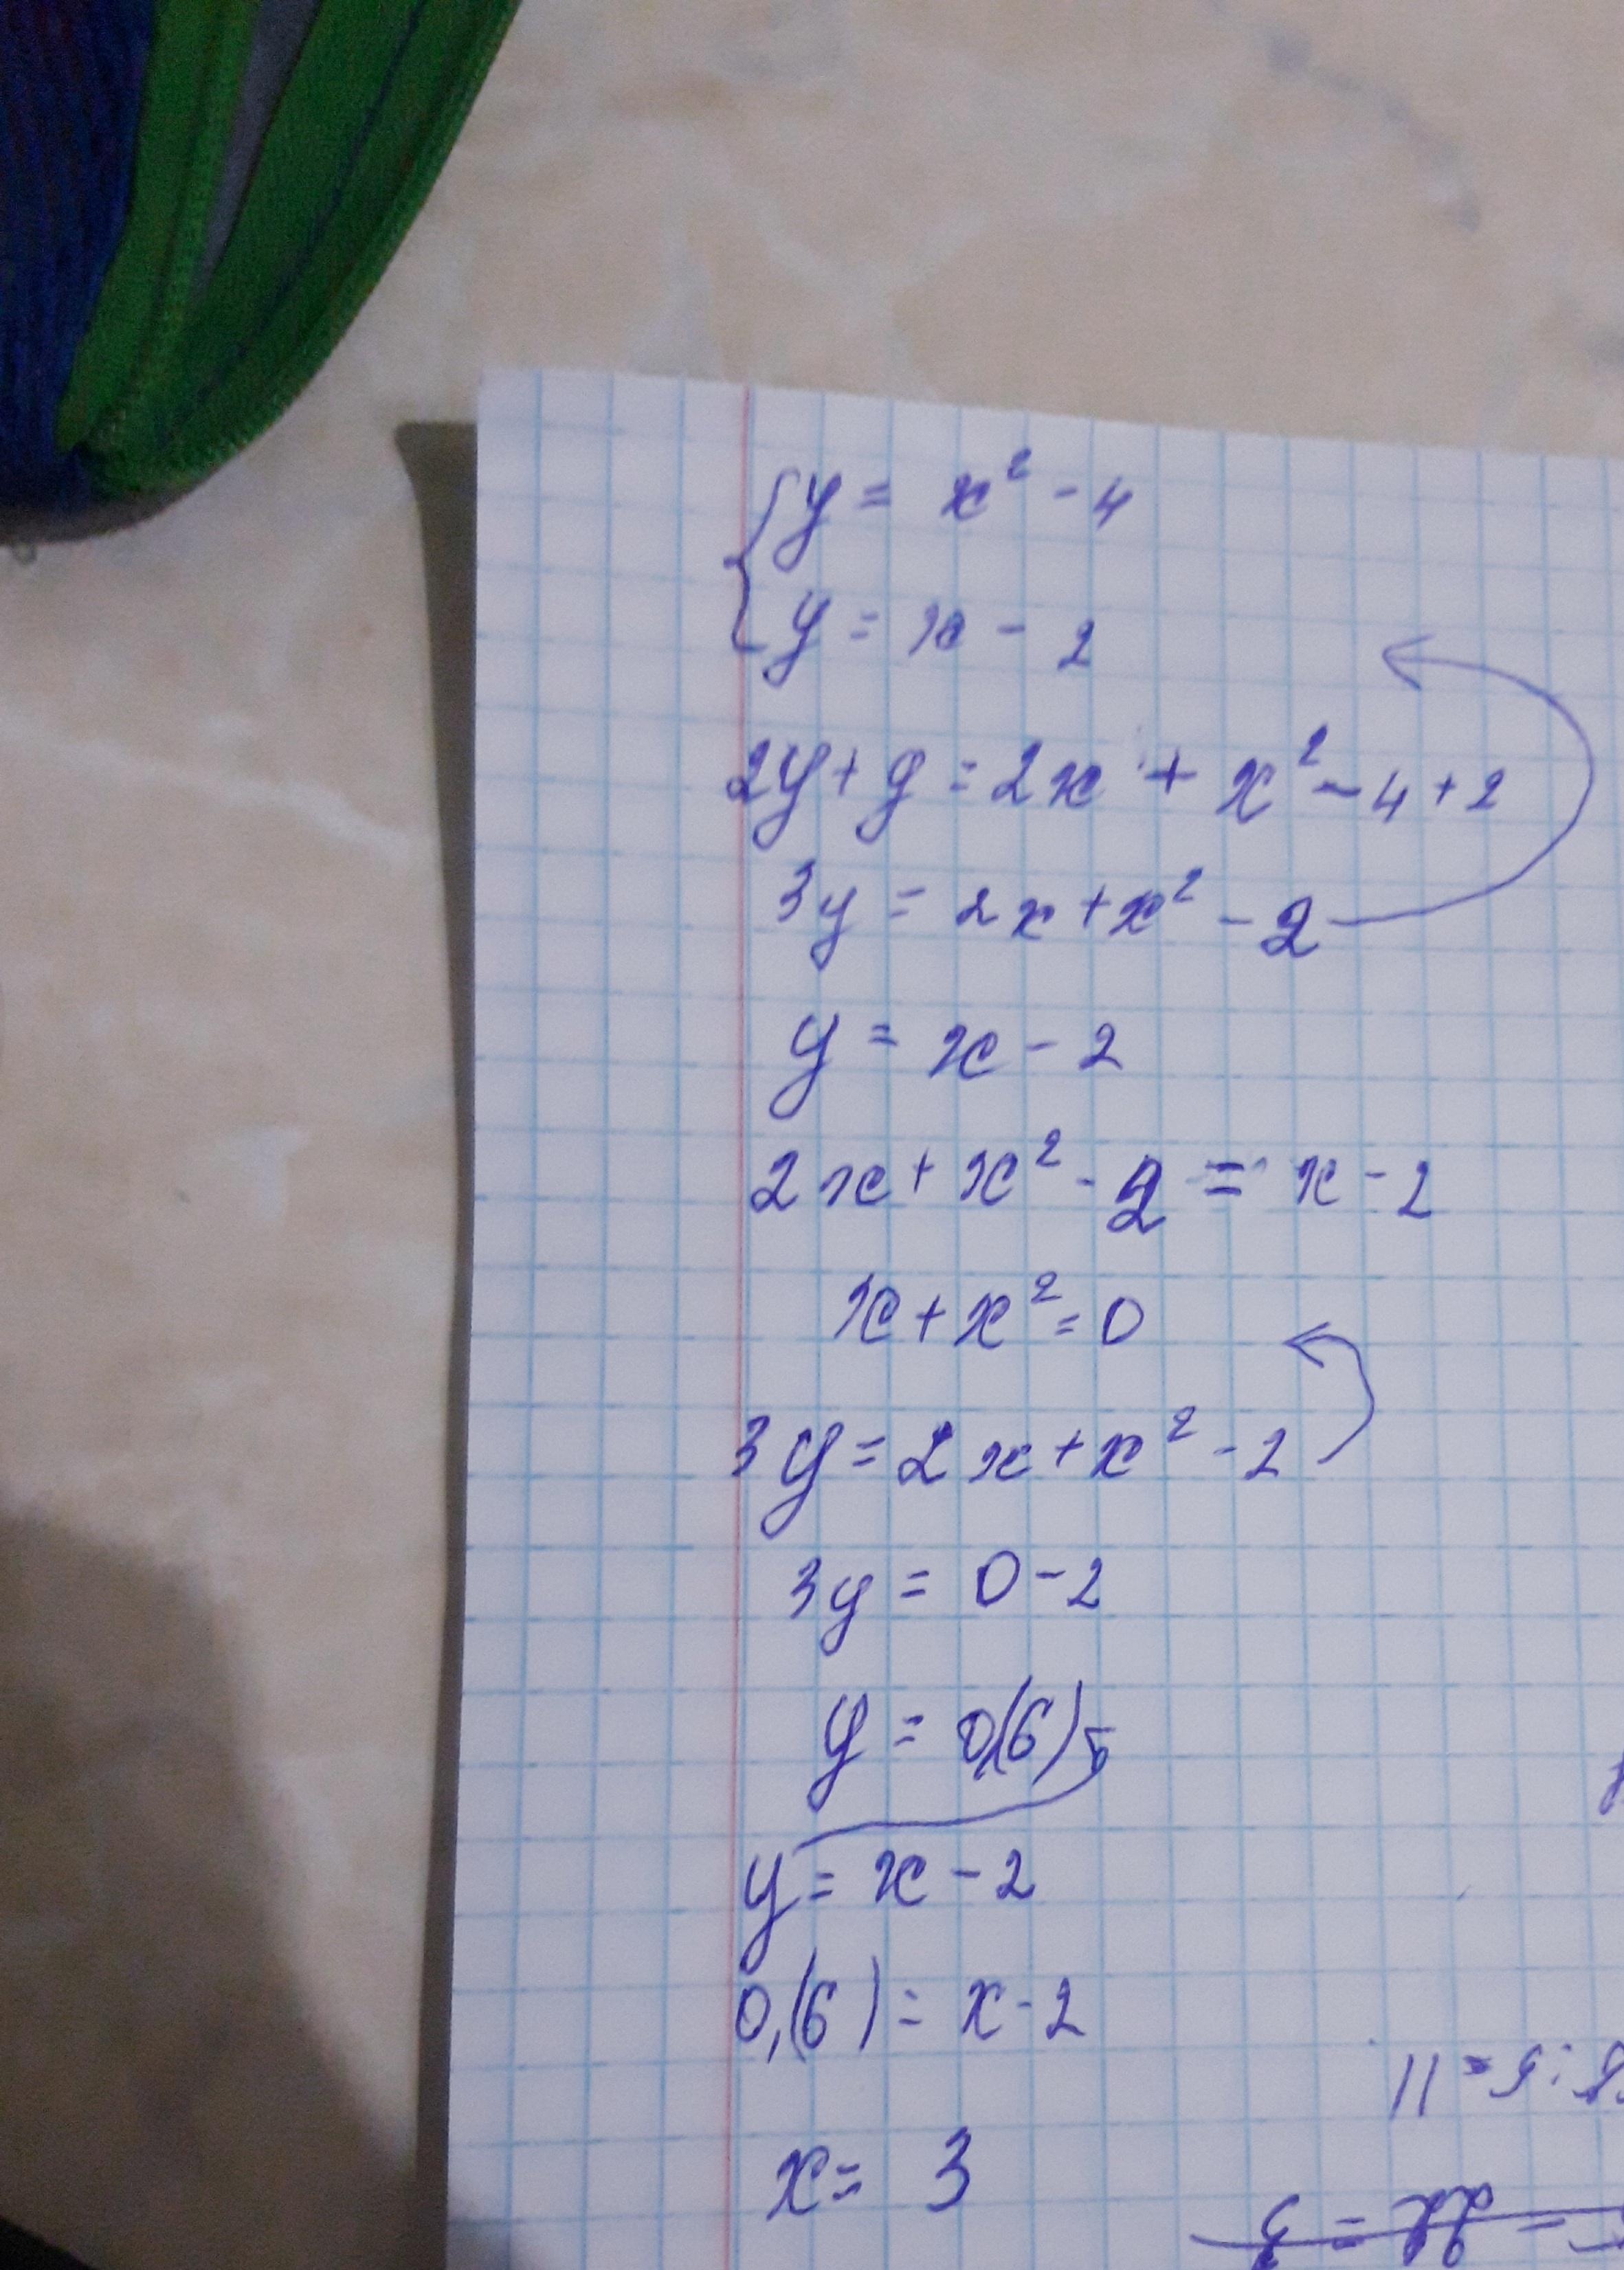 y = x² - 4
y = x - 2
2y + y = 2x + x² - 4 + 2
3y = 2x + x² - 2
y = x - 2
2x + x² - 2 = x - 2
x + x² = 0
3y = 2x + x² - 2
3y = 0 - 2
y = 0,(6)
y = x - 2
0,(6) = x - 2
x = 3